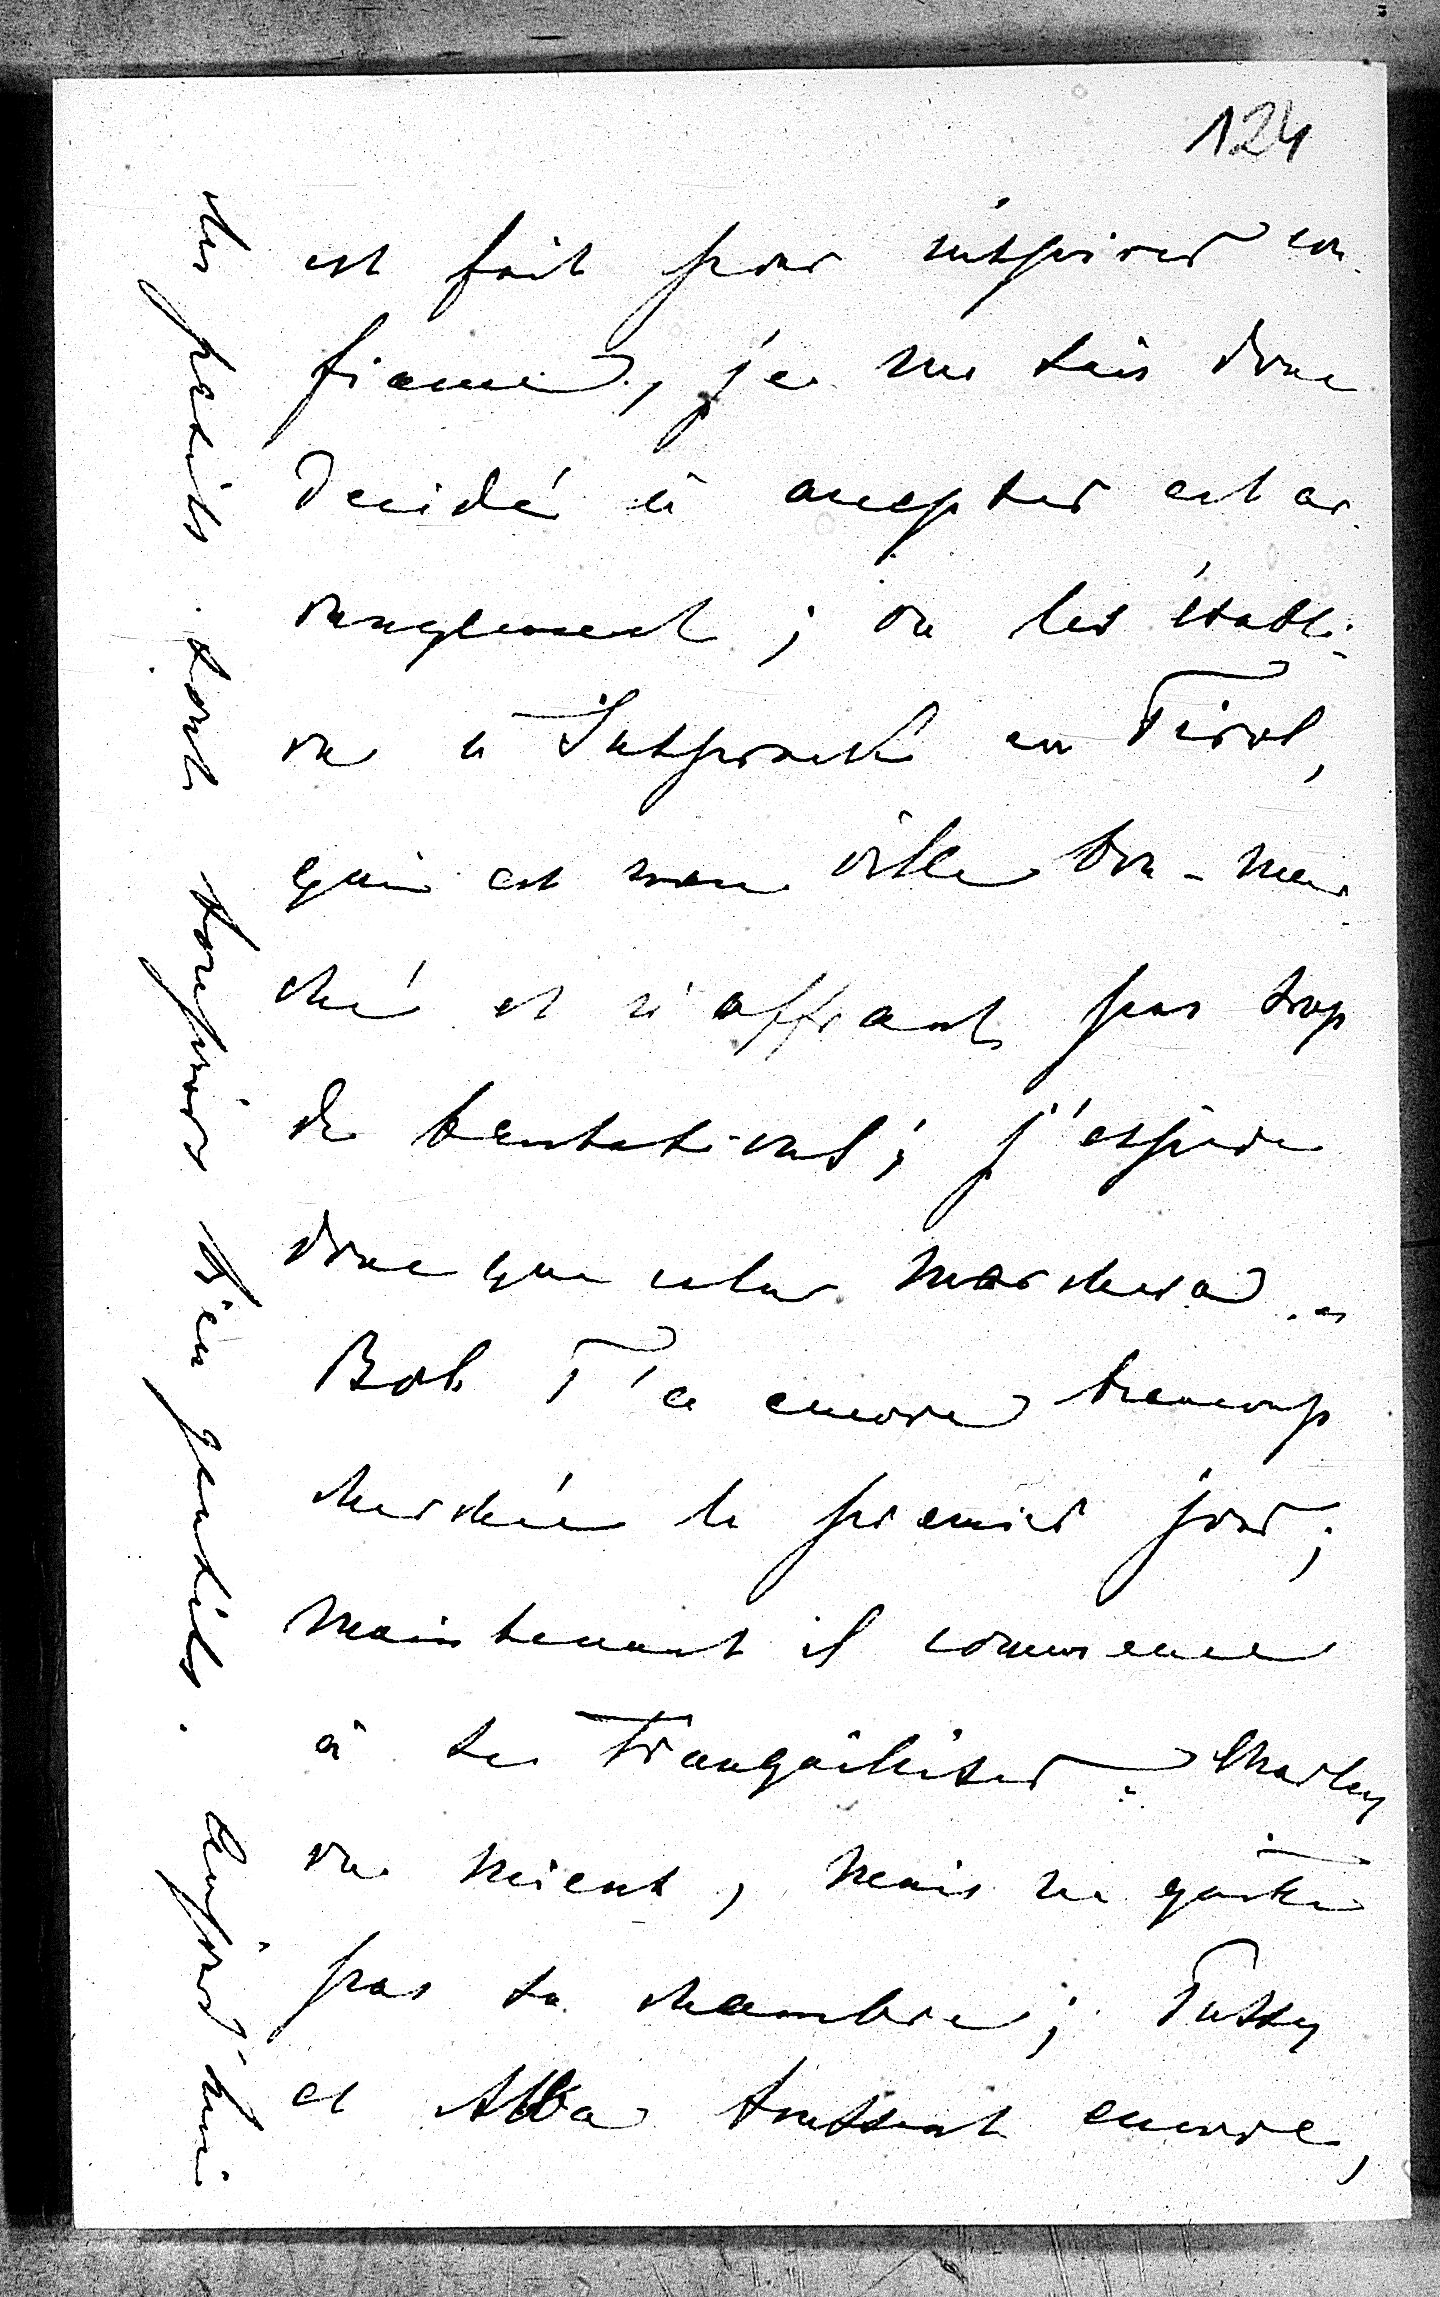 124
est fait pour inspirer con-
fiance, je me suis donc
decidé à accepter cet ar-
rangement ; on les établi-
ra à Insprouck en Tirol,
qui est une ville bon-mar-
ché et n'offrant pas trop
de tentations ; j'espère
donc que cela marchera. –
Bob T'a encore beaucoup
cherchée le premier jour ;
maintenant il commence
à se tranquiliser. – Charley
va mieux, mais ne quitte
pas sa chambre ; Pussy
et Alba toussent encore,
les petits sont toujours bien gentils. Aujourd'hui